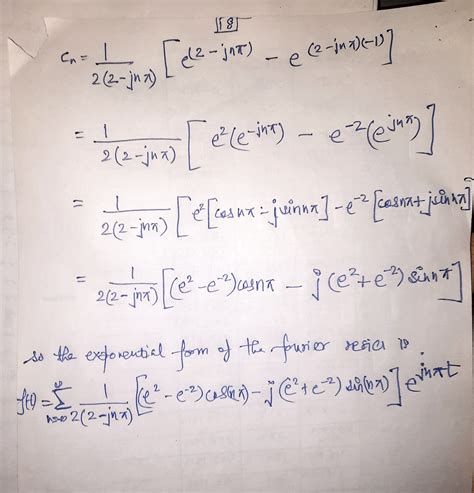 [18]
Cₙ = 1/(2(2-jnπ)) [e^(2-jnπ) - e^((2-jnπ)(-1))]
= 1/(2(2-jnπ)) [e²(e^(-jnπ)) - e^(-2)(e^(jnπ))]
= 1/(2(2-jnπ)) [e²[cosnπ - jsinnπ] - e^(-2)[cosnπ + jsinnπ]
= 1/(2(2-jnπ)) [(e² - e^(-2))cosnπ - j(e² + e^(-2)) sinnπ]
so the exponential form of the fourier series is
f(t) = ∑_(n=-∞)^∞ 1/(2(2-jnπ)) [(e² - e^(-2))cos(nπ) - j(e² + e^(-2)) sin(nπ)] e^(jnπt)